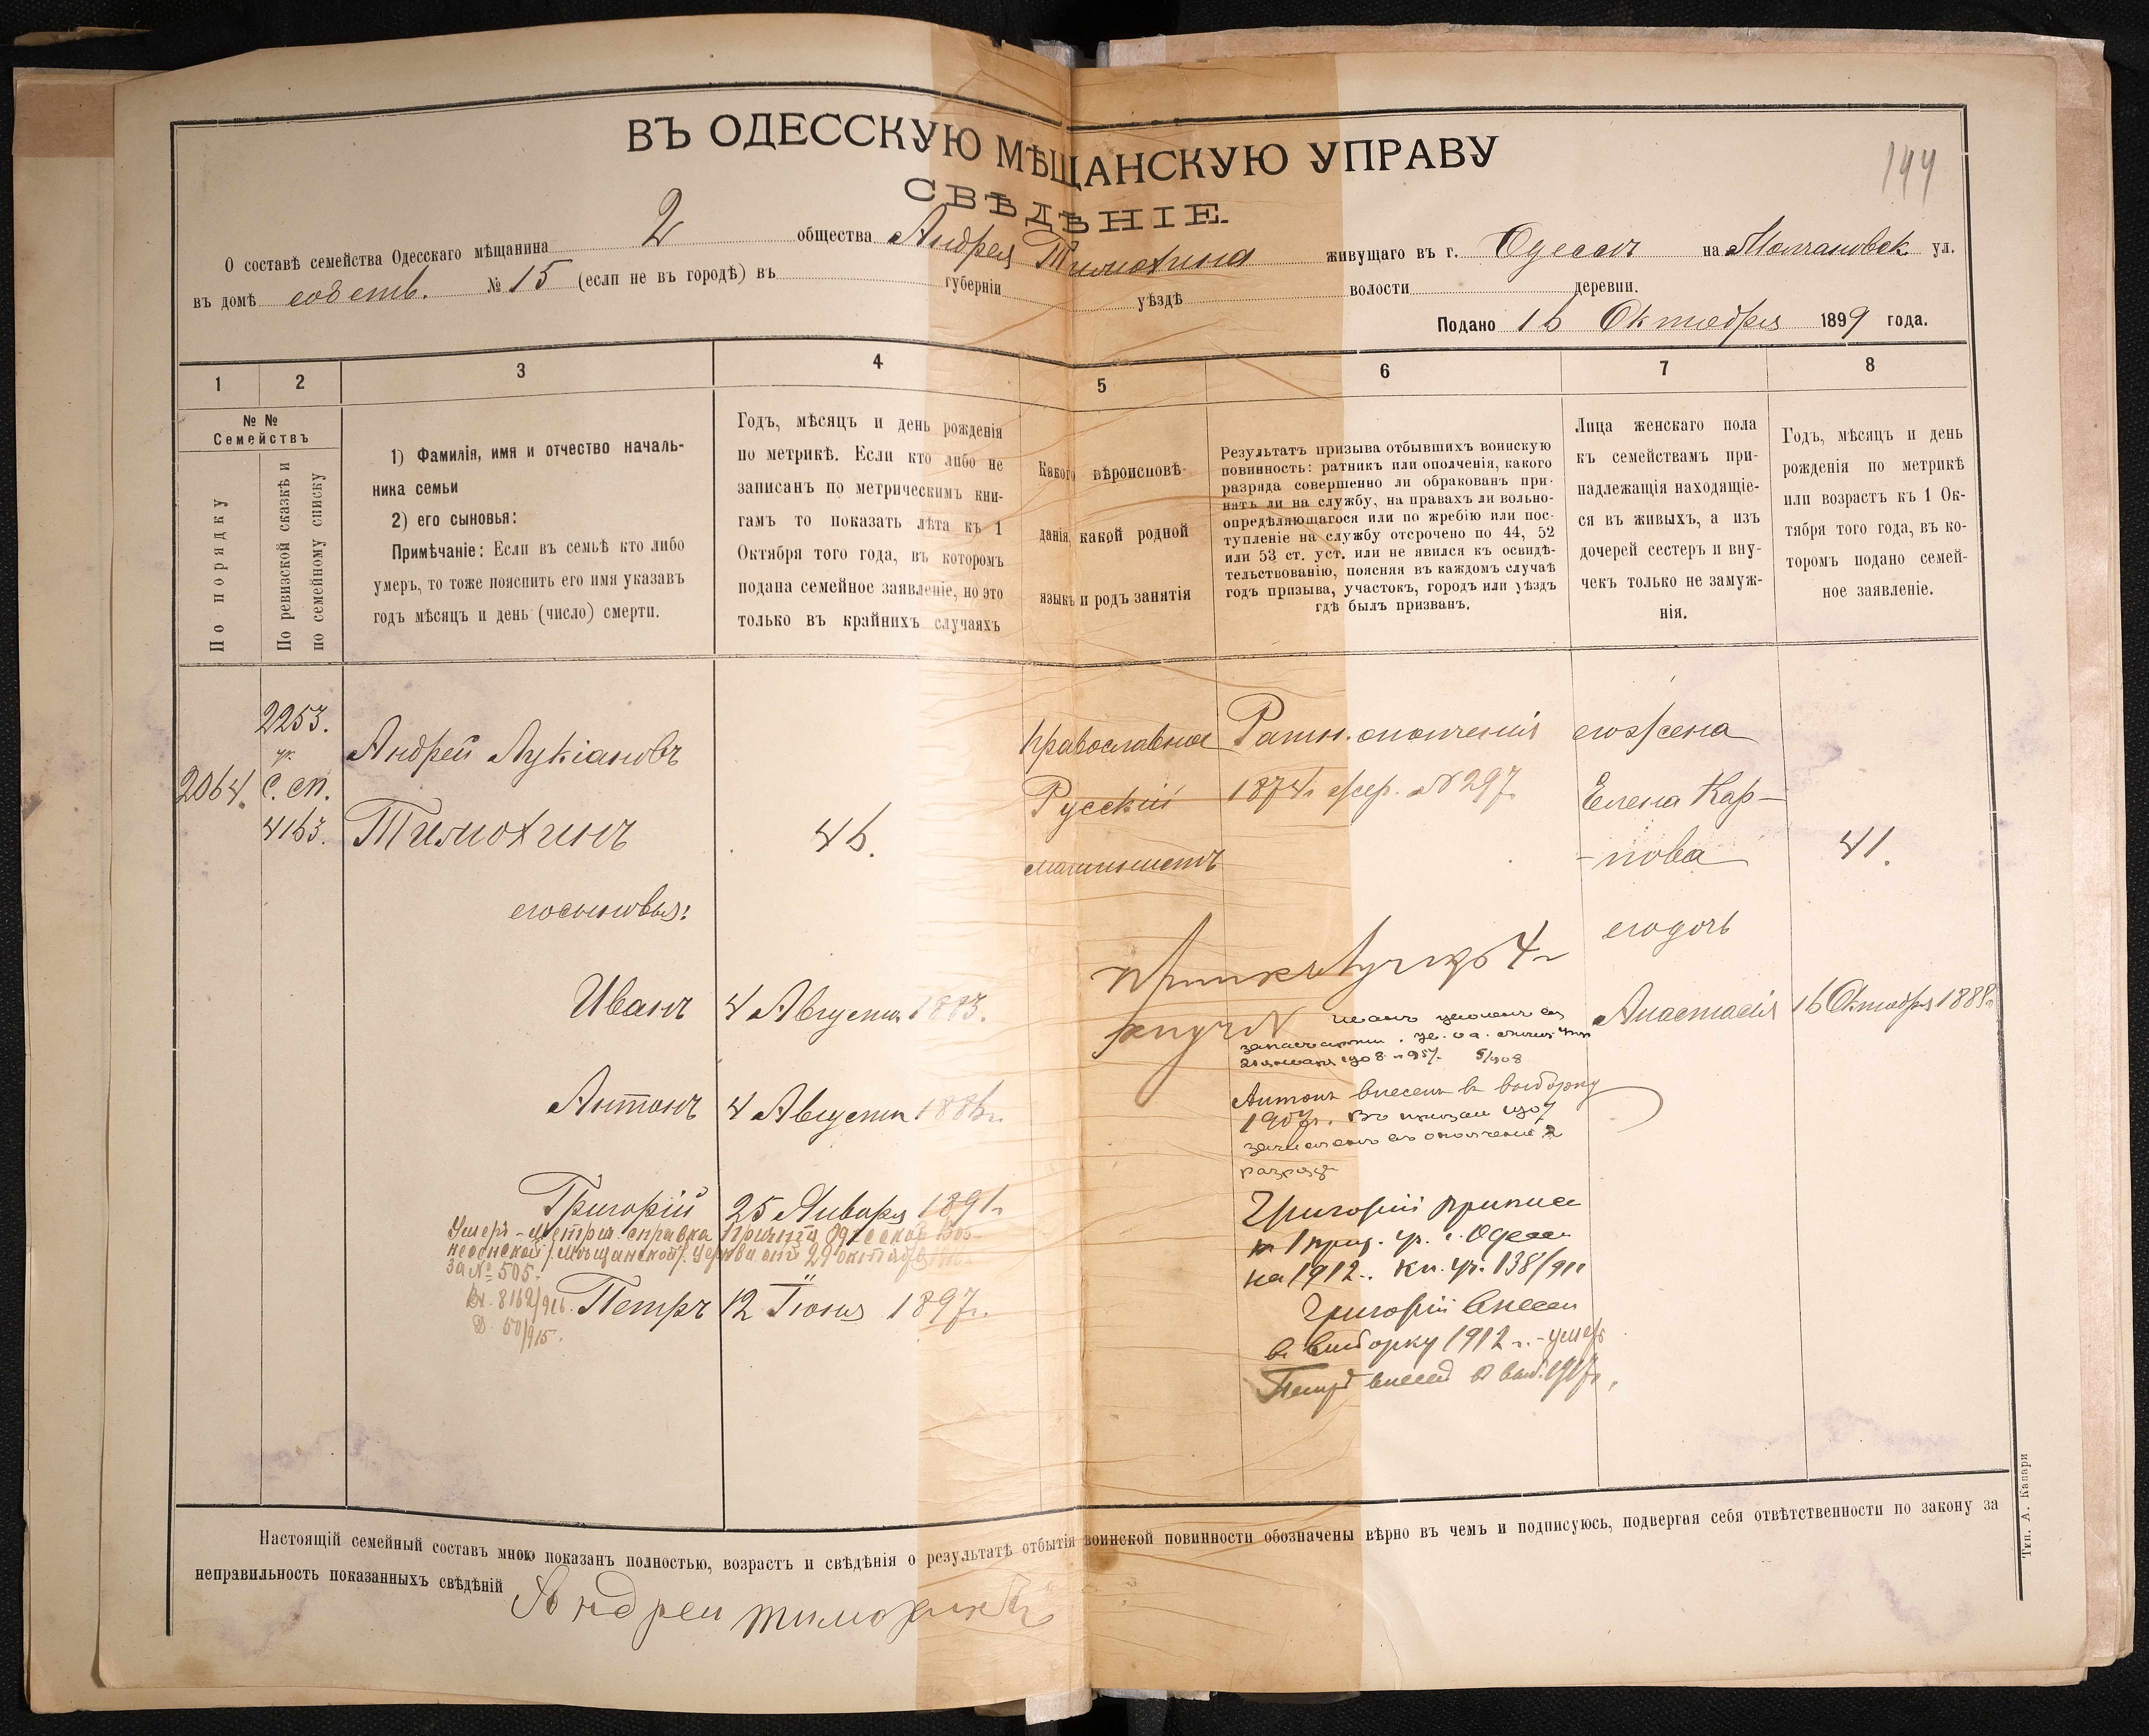 144
ВЪ ОДЕССКУЮ МѢЩАНСКУЮ УПРАВУ
СВѢДѢНІЕ.
О составѣ семейства Одесскаго мѣщанина 2 общества Андрея Тимохина живущаго въ г. Одессѣ на Молчановск. ул.
въ домѣ собств. № 15 (если не въ городѣ) въ губерніи уѣздѣ волости деревни.
Подано 16 Октября 1899 года.
1
2
3
4
5
6
7
8
№ №
Семействъ
По порядку
По ревизской сказкѣ и
по семейному списку
1) Фамилія, имя и отчество началь-
ника семьи
2) его сыновья:
Примѣчаніе: Если въ семьѣ кто либо
умеръ, то тоже пояснить его имя указавъ
годъ мѣсяцъ и день (число) смерти.
Годъ, мѣсяцъ и день рожденія
по метрикѣ. Если кто либо не
записанъ по метрическимъ кни-
гамъ то показать лѣта къ 1
Октября того года, въ которомъ
подана семейное заявленіе, но это
только въ крайнихъ случаяхъ
Какого вѣроисповѣ-
данія, какой родной
языкъ и родъ занятія
Результатъ призыва отбывшихъ воинскую
повинность: ратникъ или ополченія, какого
разряда совершенно ли обракованъ при-
нятъ ли на службу, на правахъ ли вольно-
опредѣляющагося или по жребію или пос-
тупленіе на службу отсрочено по 44, 52
или 53 ст. уст. или не явился къ освидѣ-
тельствованію, поясняя въ каждомъ случаѣ
годъ призыва, участокъ, городъ или уѣздъ
гдѣ былъ призванъ.
Лица женскаго пола
къ семействамъ при-
надлежащія находящіе-
ся въ живыхъ, а изъ
дочерей сестеръ и вну-
чекъ только не замуж-
нія.
Годъ, мѣсяцъ и день
рожденія по метрикѣ
или возрастъ къ 1 Ок-
тября того года, въ ко-
торомъ подано семей-
ное заявленіе.
2064.
2253.
С. сп.
4163.
Андрей Лукіановъ
Тимохинъ
46.
Православное
Русскій
машинистъ
Ратн. ополченія
1874 г. жер. № 297.
его жена
Елена Кар-
-пова
41.
его сыновья:
его дочь
Анастасія
16 Октября 1888 г.
Иванъ
4 Августа 1883.
Антонъ
4 Августа 1886 г.
Антонъ внесенъ въ выборку
1907 г. Въ 1907
зачисленъ въ ополченіе 2
разряда
Григорій
25 Января 1891 г.
Умеръ - метрич. справка причта Одесской
(Мѣщанской) церкви отъ 29 октяб.
за № 505.
Вх. 8162/916.
Д. 50/915.
Петръ
12 Іюня 1897 г.
Григорій припис.
къ 1 приз. уч. г. Одессы
на 1912 г. кн. уч. 138/911
Григорій внесен
в выборку 1912 г. - умеръ
Петръ внесенъ в выб. 1917 г.
Настоящій семейный составъ мною показанъ полностью, возрастъ и свѣдѣнія о результатѣ отбытія воинской повинности обозначены вѣрно въ чемъ и подписуюсь, подвергая себя отвѣтственности по закону за
неправильность показанныхъ свѣдѣній Андреи тимохинъ
Тип. А. Капари